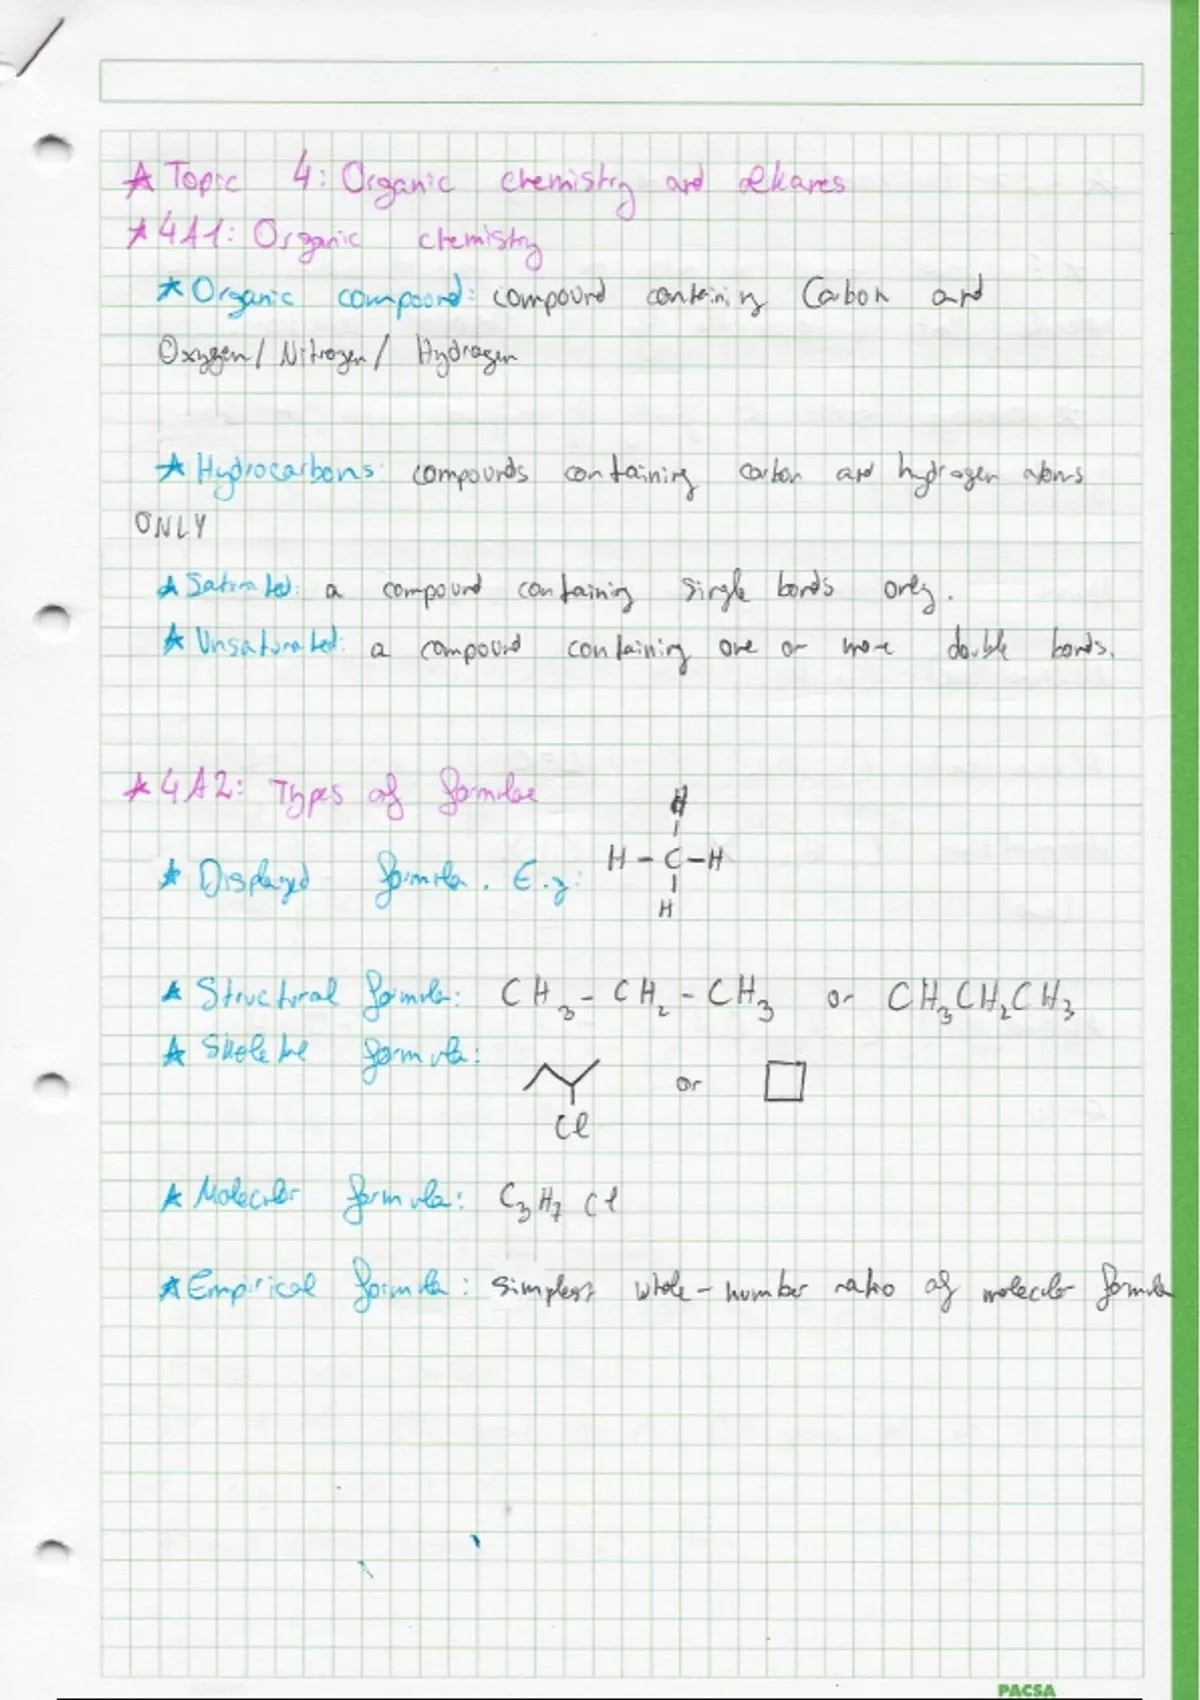 ★ Topic 4: Organic chemistry and alkanes
★ 4A1: Organic chemistry
★ Organic compound: compound containing Carbon and
Oxygen/ Nitrogen/ Hydrogen
★ Hydrocarbons: compounds containing carbon and hydrogen atoms
ONLY
★ Saturated: a compound containing single bonds only.
★ Unsaturated: a compound containing one or more double bonds.
★ 4A2: Types of formulae
H
★ Displayed formula. E.g: H - C - H
H
★ Structural formula: CH₃ - CH₂ - CH₃ or CH₃CH₂CH₃
★ Skeletal formula:
or
Cl
★ Molecular formula: C₃H₇Cl
★ Empirical formula: simplest whole-number ratio of molecular formula
PACSA